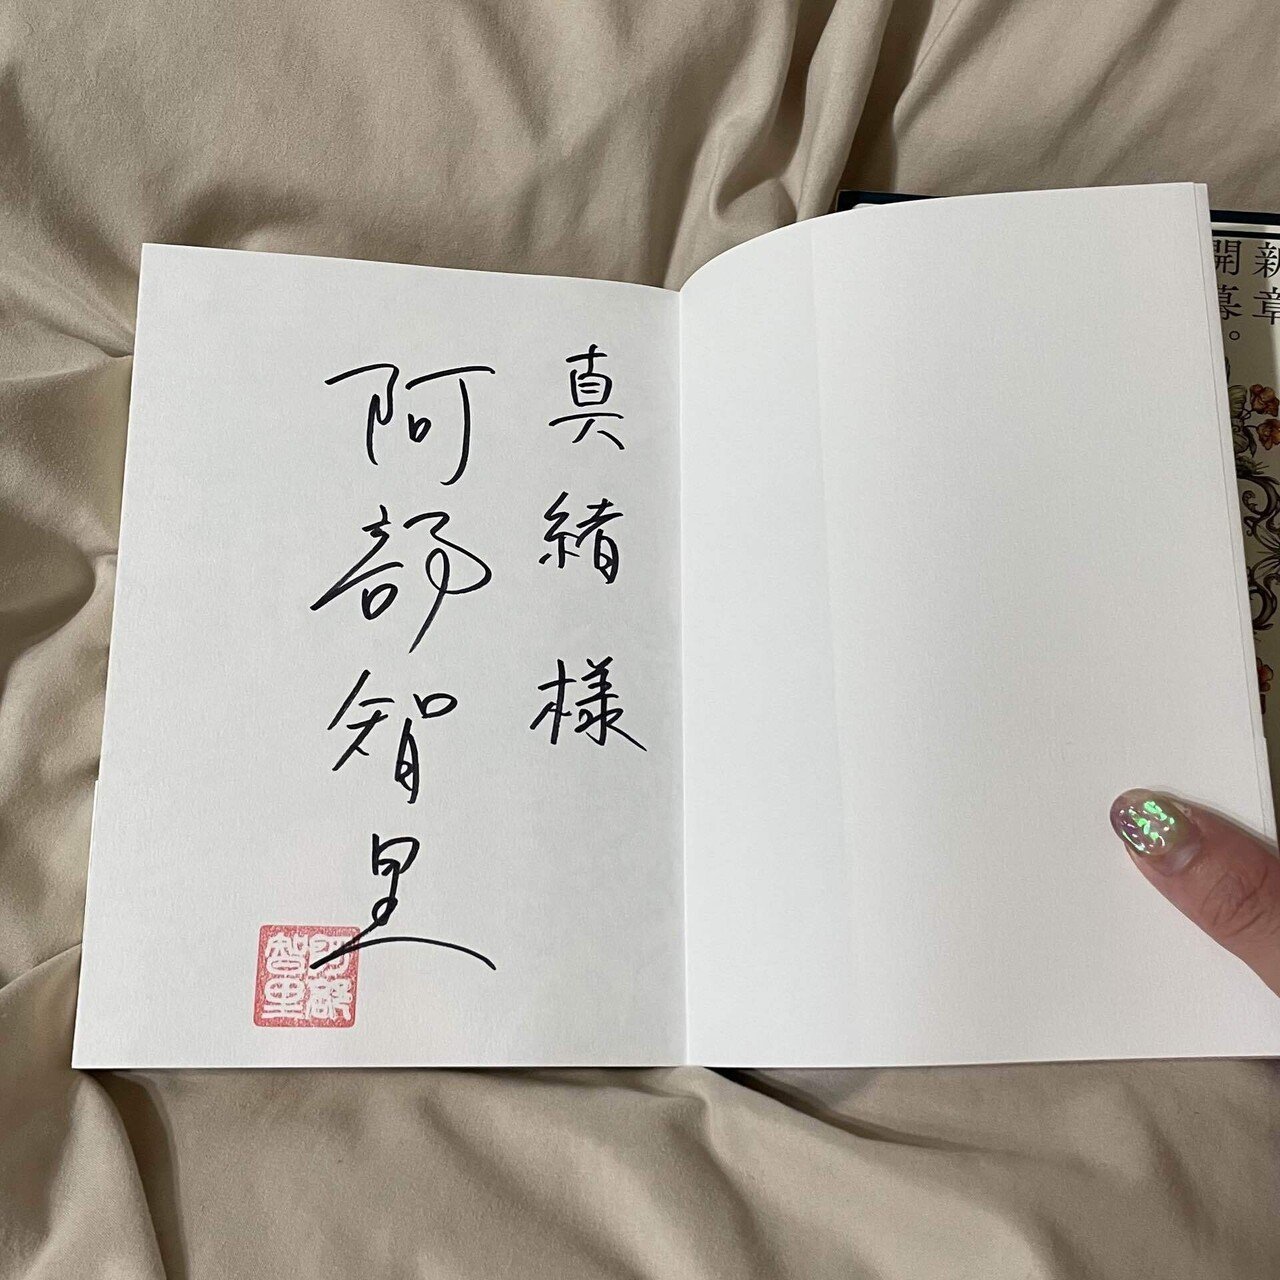 真緒様
阿部智里
阿部
智里
新章
開幕。